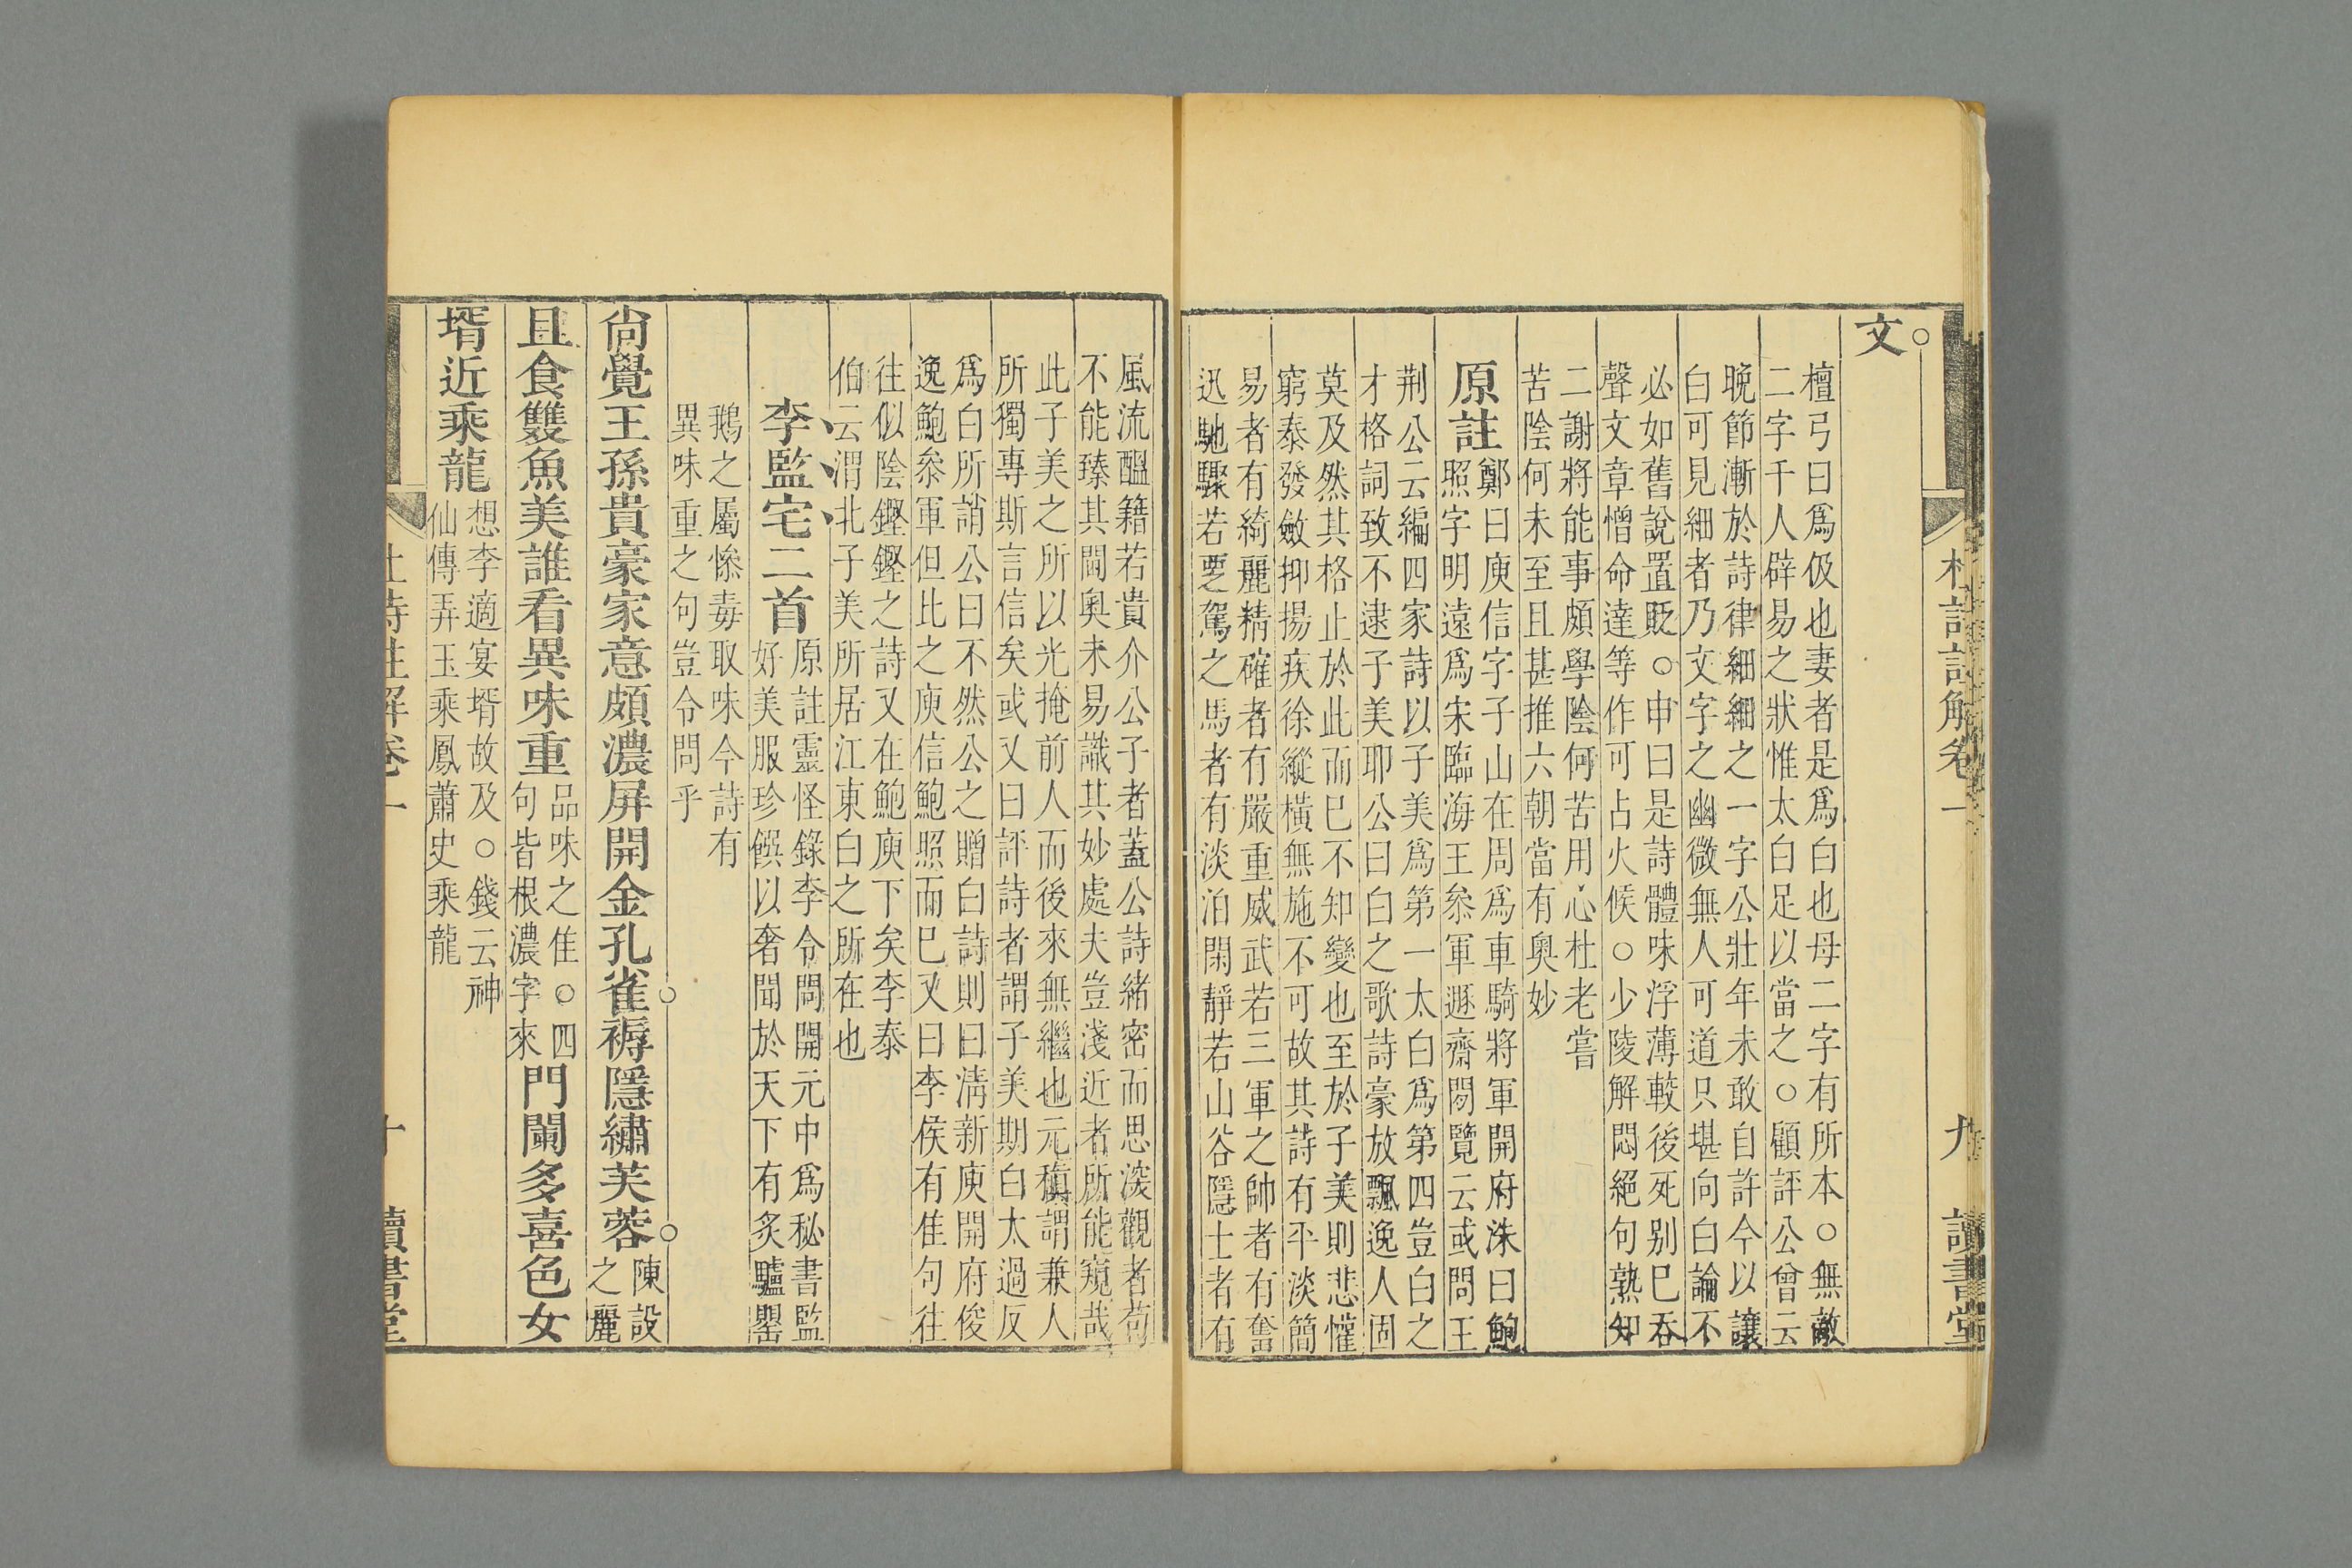 杜詩註解卷一
九
讀書堂
文
檀弓曰爲伋也妻者是爲白也母二字有所本○無敵
二字千人辟易之狀惟太白足以當之○顧評公曾云
晚節漸於詩律細細之一字公壯年未敢自許今以讓
白可見細者乃文字之幽微無人可道只堪向白論不
必如舊說置貶○申曰是詩體味浮薄較後死别已吞
聲文章憎命達等作可占火候○少陵解悶絕句熟知
二謝將能事頗學陰何苦用心杜老嘗
苦陰何未至且甚推六朝當有奥妙
原註
鄭曰庾信字子山在周爲車騎將軍開府洙曰鮑
照字明遠爲宋臨海王叅軍遯齋閱覽云或問王
荆公云編四家詩以子美爲第一太白爲第四豈白之
才格詞致不逮子美耶公曰白之歌詩豪放飄逸人固
莫及然其格止於此而已不知變也至於子美則悲懽
窮泰發斂抑揚疾徐縱橫無施不可故其詩有平淡簡
易者有綺麗精確者有嚴重威武若三軍之帥者有奮
迅馳驟若覂駕之馬者有淡泊閑靜若山谷隱士者有
風流醞籍若貴介公子者蓋公詩緒密而思深觀者苟
不能臻其閫奥未易識其妙處夫豈淺近者所能窺哉
此子美之所以光掩前人而後來無繼也元稹謂兼人
所獨專斯言信矣或又曰評詩者謂子美期白太過反
爲白所誚公曰不然公之贈白詩則曰清新庾開府俊
逸鮑叅軍但比之庾信鮑照而已又曰李侯有佳句往
往似陰鏗鏗之詩又在鮑庾下矣李泰
伯云渭北子美所居江東白之所在也
李監宅二首
原註靈怪錄李令問開元中爲秘書監
好美服珍饌以奢聞於天下有炙驢罌
鵝之屬慘毒取味今詩有
異味重之句豈令問乎
尙覺王孫貴豪家意頗濃屏開金孔雀褥隱繡芙蓉
陳設
之麗
且食雙魚美誰看異味重
品味之佳○四
句皆根濃字來
門闌多喜色女
壻近乘龍
想李適宴壻故及○錢云神
仙傳弄玉乘鳳蕭史乘龍
杜詩註解卷一
十
讀書堂